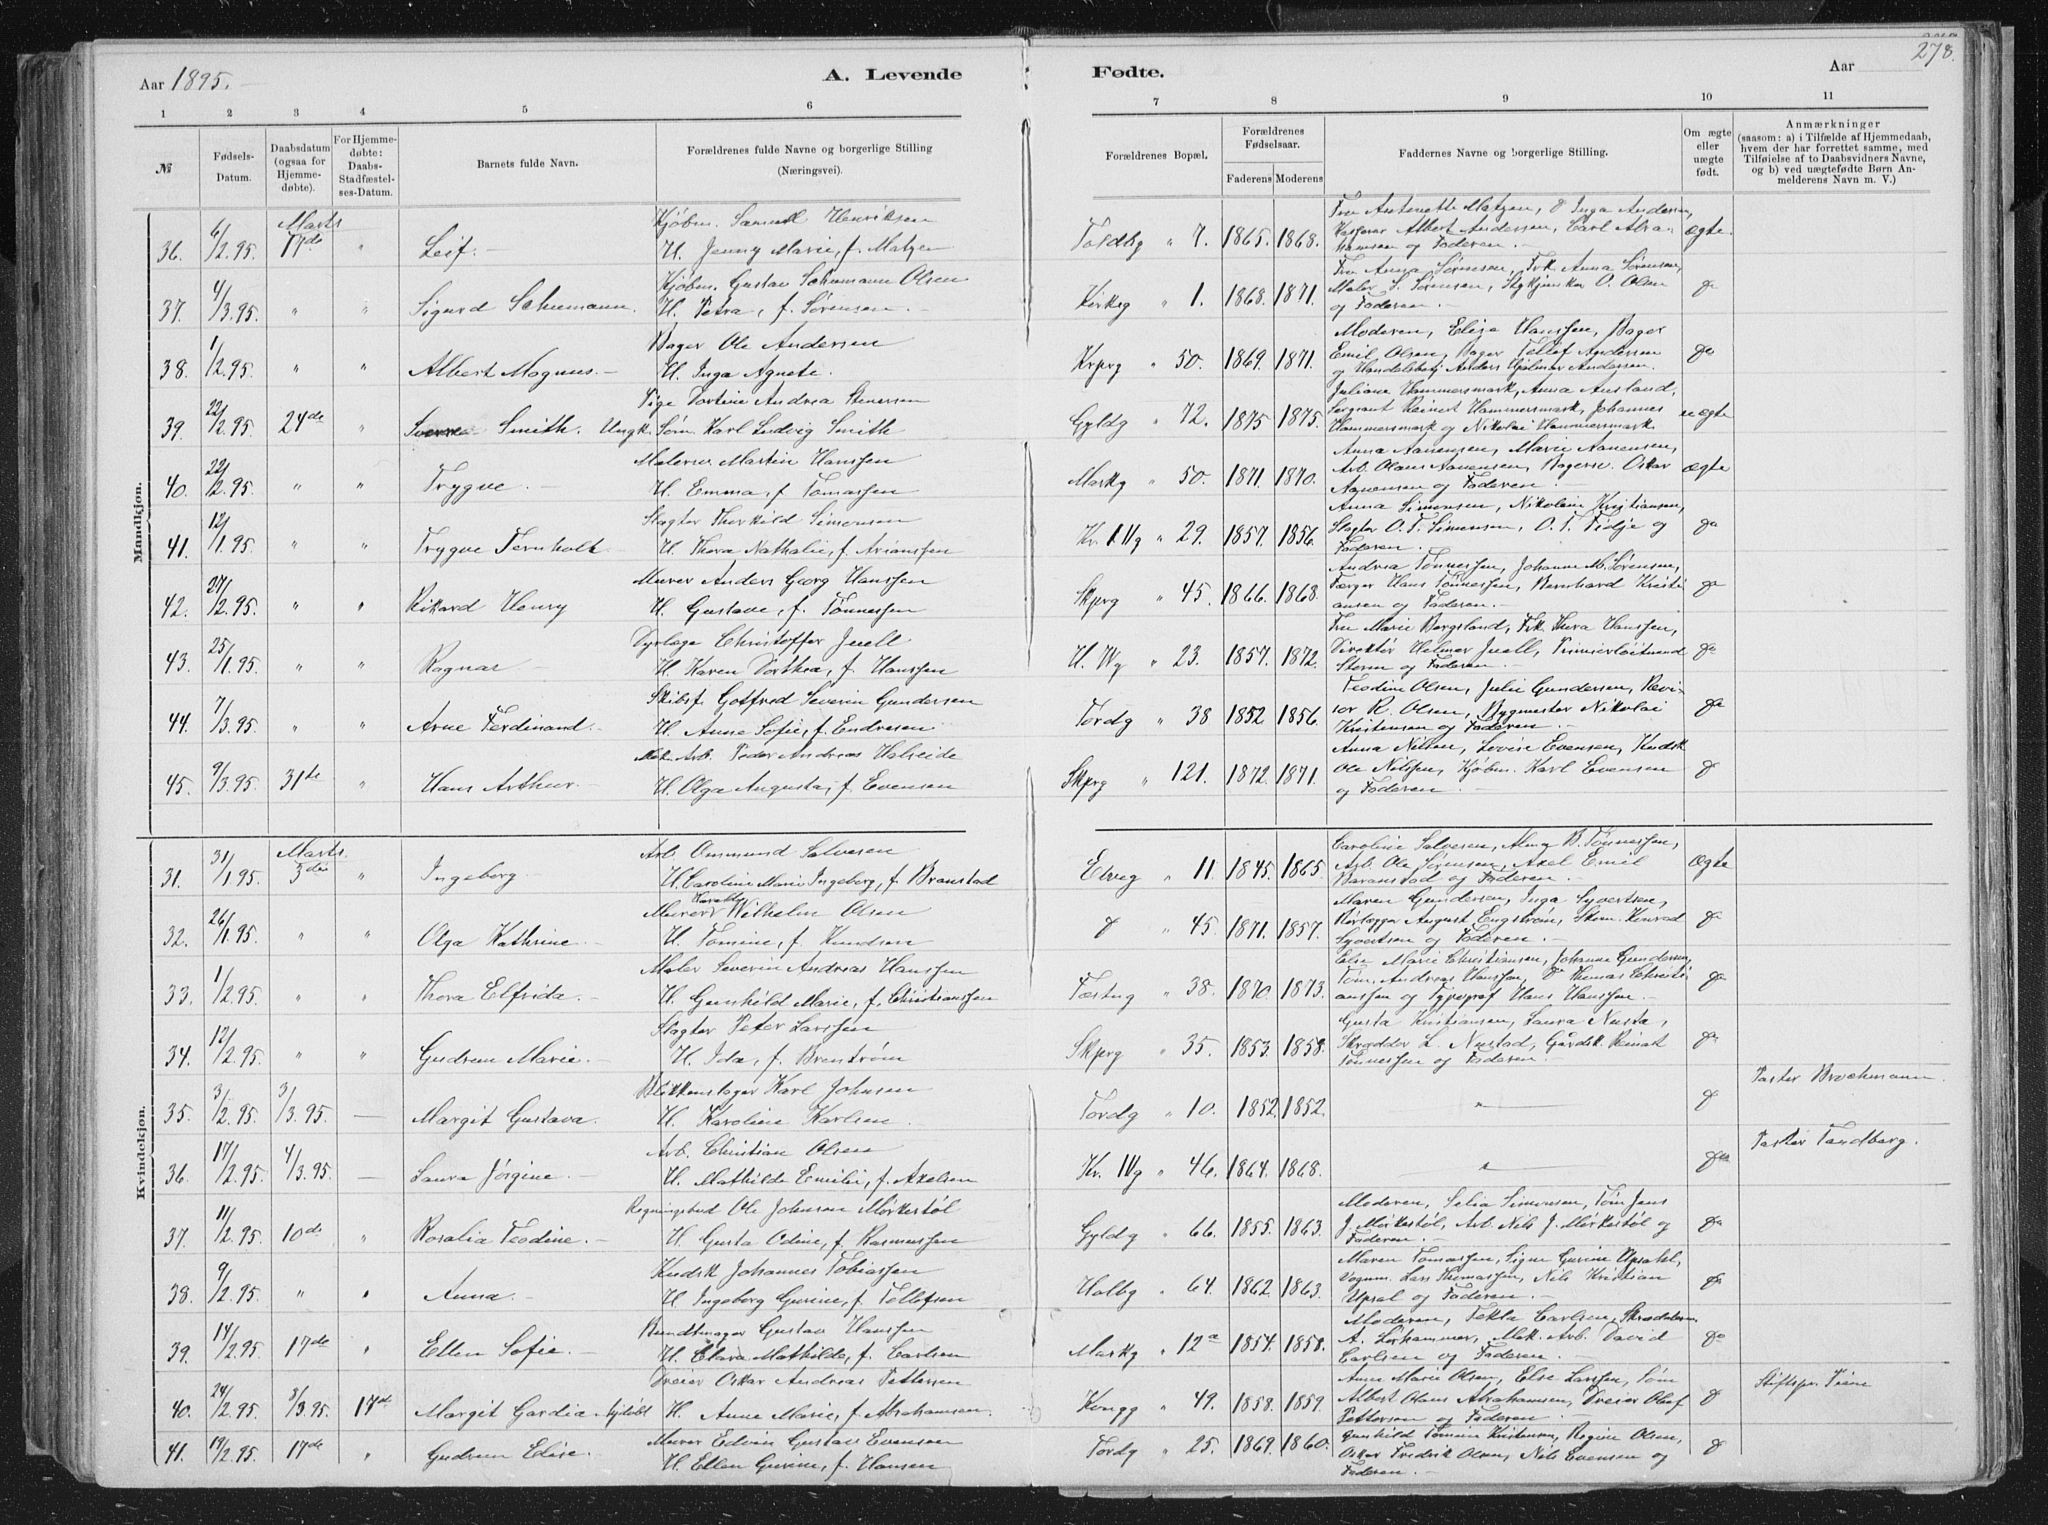 Aar 1895.
A. Levende Fødte.
Aar
278.
1 2 3 4 5 6 7 8 9 10 11
№
Fødsels-Datum.
Daabsdatum (ogsaa for Hjemmedøbte).
For Hjemmedøbte: Daabs-Stadfæstelses-Datum.
Barnets fulde Navn.
Forældrenes fulde Navne og borgerlige Stilling (Næringsvei).
Forældrenes Bopæl.
Forældrenes Fødselsaar.
Faderens Moderens
Faddernes Navne og borgerlige Stilling.
Om ægte eller uægte født.
Anmærkninger
(saasom: a) i Tilfælde af Hjemmedaab, hvem der har forrettet samme, med Tilføielse af to Daabsvidners Navne, og b) ved uægtefødte Børn Anmelderens Navn m. V.)
Mandkjøn.
36. 6/2.95. Marts 17de " Leif. Kjøbm. Samuel Henriksen
H. Jenny Marie, f. Matzen Toldbg " 7. 1865. 1868. Fru Antonette Matzen, d Inga Andersen,
Kasserer Albert Andersen, Carl Abrahamsen og Faderen. Ægte
37. 4/3.95. " " Sigurd Schumann. Kjøbm. Gustav Schumann Olsen
H. Petra, f. Sørensen. Kirkeg " 1. 1868. 1871. Fru Anna Sørensen, Frk. Anna Sørensen,
Maler S. Sørensen, O. Olsen
og Faderen. do
38. 1/2.95. " " Albert Magnus. Bager Ole Andersen
H. Inga Agnete. Krprg " 50. 1869. 1871. Moderen, Elise Hanssen, Bager
Emil Olsen, Bager Tellef Andersen
og Handelsbetj Anders Hjalmar Andersen. do
39. 22/2.95. 24de " Sverre Smith. Pige Dortine Andrea Stenersen
Ungk. Søm. Karl Ludvig Smith Gyldg " 72. 1875 1875. Juliane Hammersmark, Anna Ausland,
Sergeant Reinert Hammersmark, Johannes
Hammersmark og Nikolai Hammersmark uægte
40. 22/2.95. " " Trygve. Malersv. Martin Hanssen
H. Emma, f Tomassen Markg " 50. 1871. 1870. Anna Aanensen, Marie Aanensen,
Arb. Olaus Aanensen, Bagersv. Oskar
Aanensen og Faderen. Ægte
41. 12/1.95. " " Trygve Fernholt. Slagter Thorkild Simonsen
H. Thora Nathalie, f. Arianssen Kr. IVg " 29. 1857. 1856. Anna Simonsen, Nikoline Kristiansen,
Slagter O. T. Simonsen, O. T. Tidje og
Faderen. do
42. 27/2.95. " " Rikard Henry Murer Anders Georg Hanssen
H. Gustave, f. Tønnessen Skprg " 45. 1866. 1868. Andrea Tønnessen, Johanne M. Sørensen,
Farger Hans Tønnessen, Bernhard Kristiansen og Faderen. do
43. 25/1.95. " " Ragnar Dyrlæge Christoffer Juell
H. Karen Dorthea, f. Hanssen H. Wg " 23. 1857. 1872. Fru Marie Bergsland, Frk. Thora Hanssen,
Direktør Helmer Juell, Premierløitnand
Storm og Faderen. do
44. 7/3.95. " " Arne Ferdinand. Skibsf. Gotfred Severin Gundersen
H. Anne Sofie, f. Endresen Tordg " 38 1852 1856. Teodine Olsen, Julie Gundersen, Revisor R. Olsen, Bygmester Nikolai
Kristensen og Faderen. do
45. 9/3.95. 31te " Hans Arthur. Mek. Arb. Peder Andreas Hatreide
H. Olga Augusta, f Evensen Skprg " 121. 1872. 1871. Anna Nilsen, Lovise Evensen, Kudsk
Ole Nilssen, Kjøbm. Karl Evensen
og Faderen. d
Kvindekjøn.
31. 31/1.95. Marts. 3die " Ingeborg. Arb. Ommund Salvesen
H. Caroline Marie Ingeborg, f Branstad Elveg " 11 1845. 1865. Caroline Salvesen, Alma B. Tønnessen,
Arb. Ole Sørensen, Axel Emil
Baranstad og Faderen. Ægte
32. 26/1.95. " " Olga Kathrine. Murer Wilhelm Olsen
H. Tomine, f. Knudsen d " 45. 1871. 1857. Maren Gundersen, Inga Syvertsen,
Rørlægger August Engstrøm, Skom. Konrad
Syvertsen og Faderen. do
33. 1/2.95. " " Thora Elfrida. Maler Severin Andreas Hanssen
H. Gunhild Marie, f. Christianssen Fæstng " 38. 1870. 1873. Else Marie Christiansen, Johanne Gundersen,
Tøm. Andreas Hanssen, do Thomas Christianssen og Typograf Hans Hanssen. do
34. 12/2.95. " " Gudrun Marie. Slagter Peter Larssen
H. Ida, f. Brenstrøm Skprg " 35. 1853. 1858. Gusta Kristiansen, Laura Nusta,
Skrædder L. Nustad, Gårdsk. Reinat
Tønnessen og Faderen. do
35. 3/2.95. 3/3.95. — Margit Gustava. Blikkenslager Karl Johnsen
H. Karoline Karlsen Tordg " 10. 1852. 1852. " d Pastor Brochmann.
36. 17/2.95. 4/3.95. — Laura Jørgine. Arb. Christian Olsen
H. Mathilde Emilie, f. Axelsen Kr. IVg " 46. 1864. 1868. " do Pastor Tandberg.
37. 11/2.95. 10de " Rosalia Teodine. Regningsbud Ole Johnsen Mørkestøl
H. Gusta Odine, f Rasmussen Gyldg " 66. 1855. 1863. Moderen, Selia Simonsen, Tøm Jens
J. Mørkestøl, Arb. Nils J. Mørkestøl og
Faderen. do
38. 9/2.95. " " Anna. Kudsk Johannes Tobiassen
H. Ingeborg Gurine, f. Tellefsen Holbg " 64. 1862. 1863. Maren Tomassen, Signe Gurine Upsahl,
Vognm. Lars Thomassen, Nils Kristian
Upsal og Faderen. do
39. 14/2.95. 17de " Ellen Sofie. Bundtmager Gustav Hanssen
H. Clara Mathilde, f. Carlsen Markg " 12a 1854. 1858. Moderen, Tekla Carlsen, Skrædderm.
A. Lørhammer, Mek. Arb. David
Carlsen og Faderen. do
40. 24/2.95. 8/3.95. 17de Margit Gardia Dreier Oskar Andreas Pettersen
H. Anne Marie, f. Abrahamsen. Kongg " 49. 1858. 1859. Anna Marie Olsen, Else Larssen, Tøm
Albert Olaus Abrahamsen, Dreier Oluf
Pettersen og Faderen. d Stiftspr. Tiem
41. 19/2.95. 17de " Gudrun Elise. Murer Edvin Gustav Evensen
H. Ellen Gurine, f. Hansen Tordg " 25. 1869. 1860. Gunhild Tomine Kristensen, Regine Olsen,
Oskar Fredrik Olsen, Nils Evensen og
Faderen. d